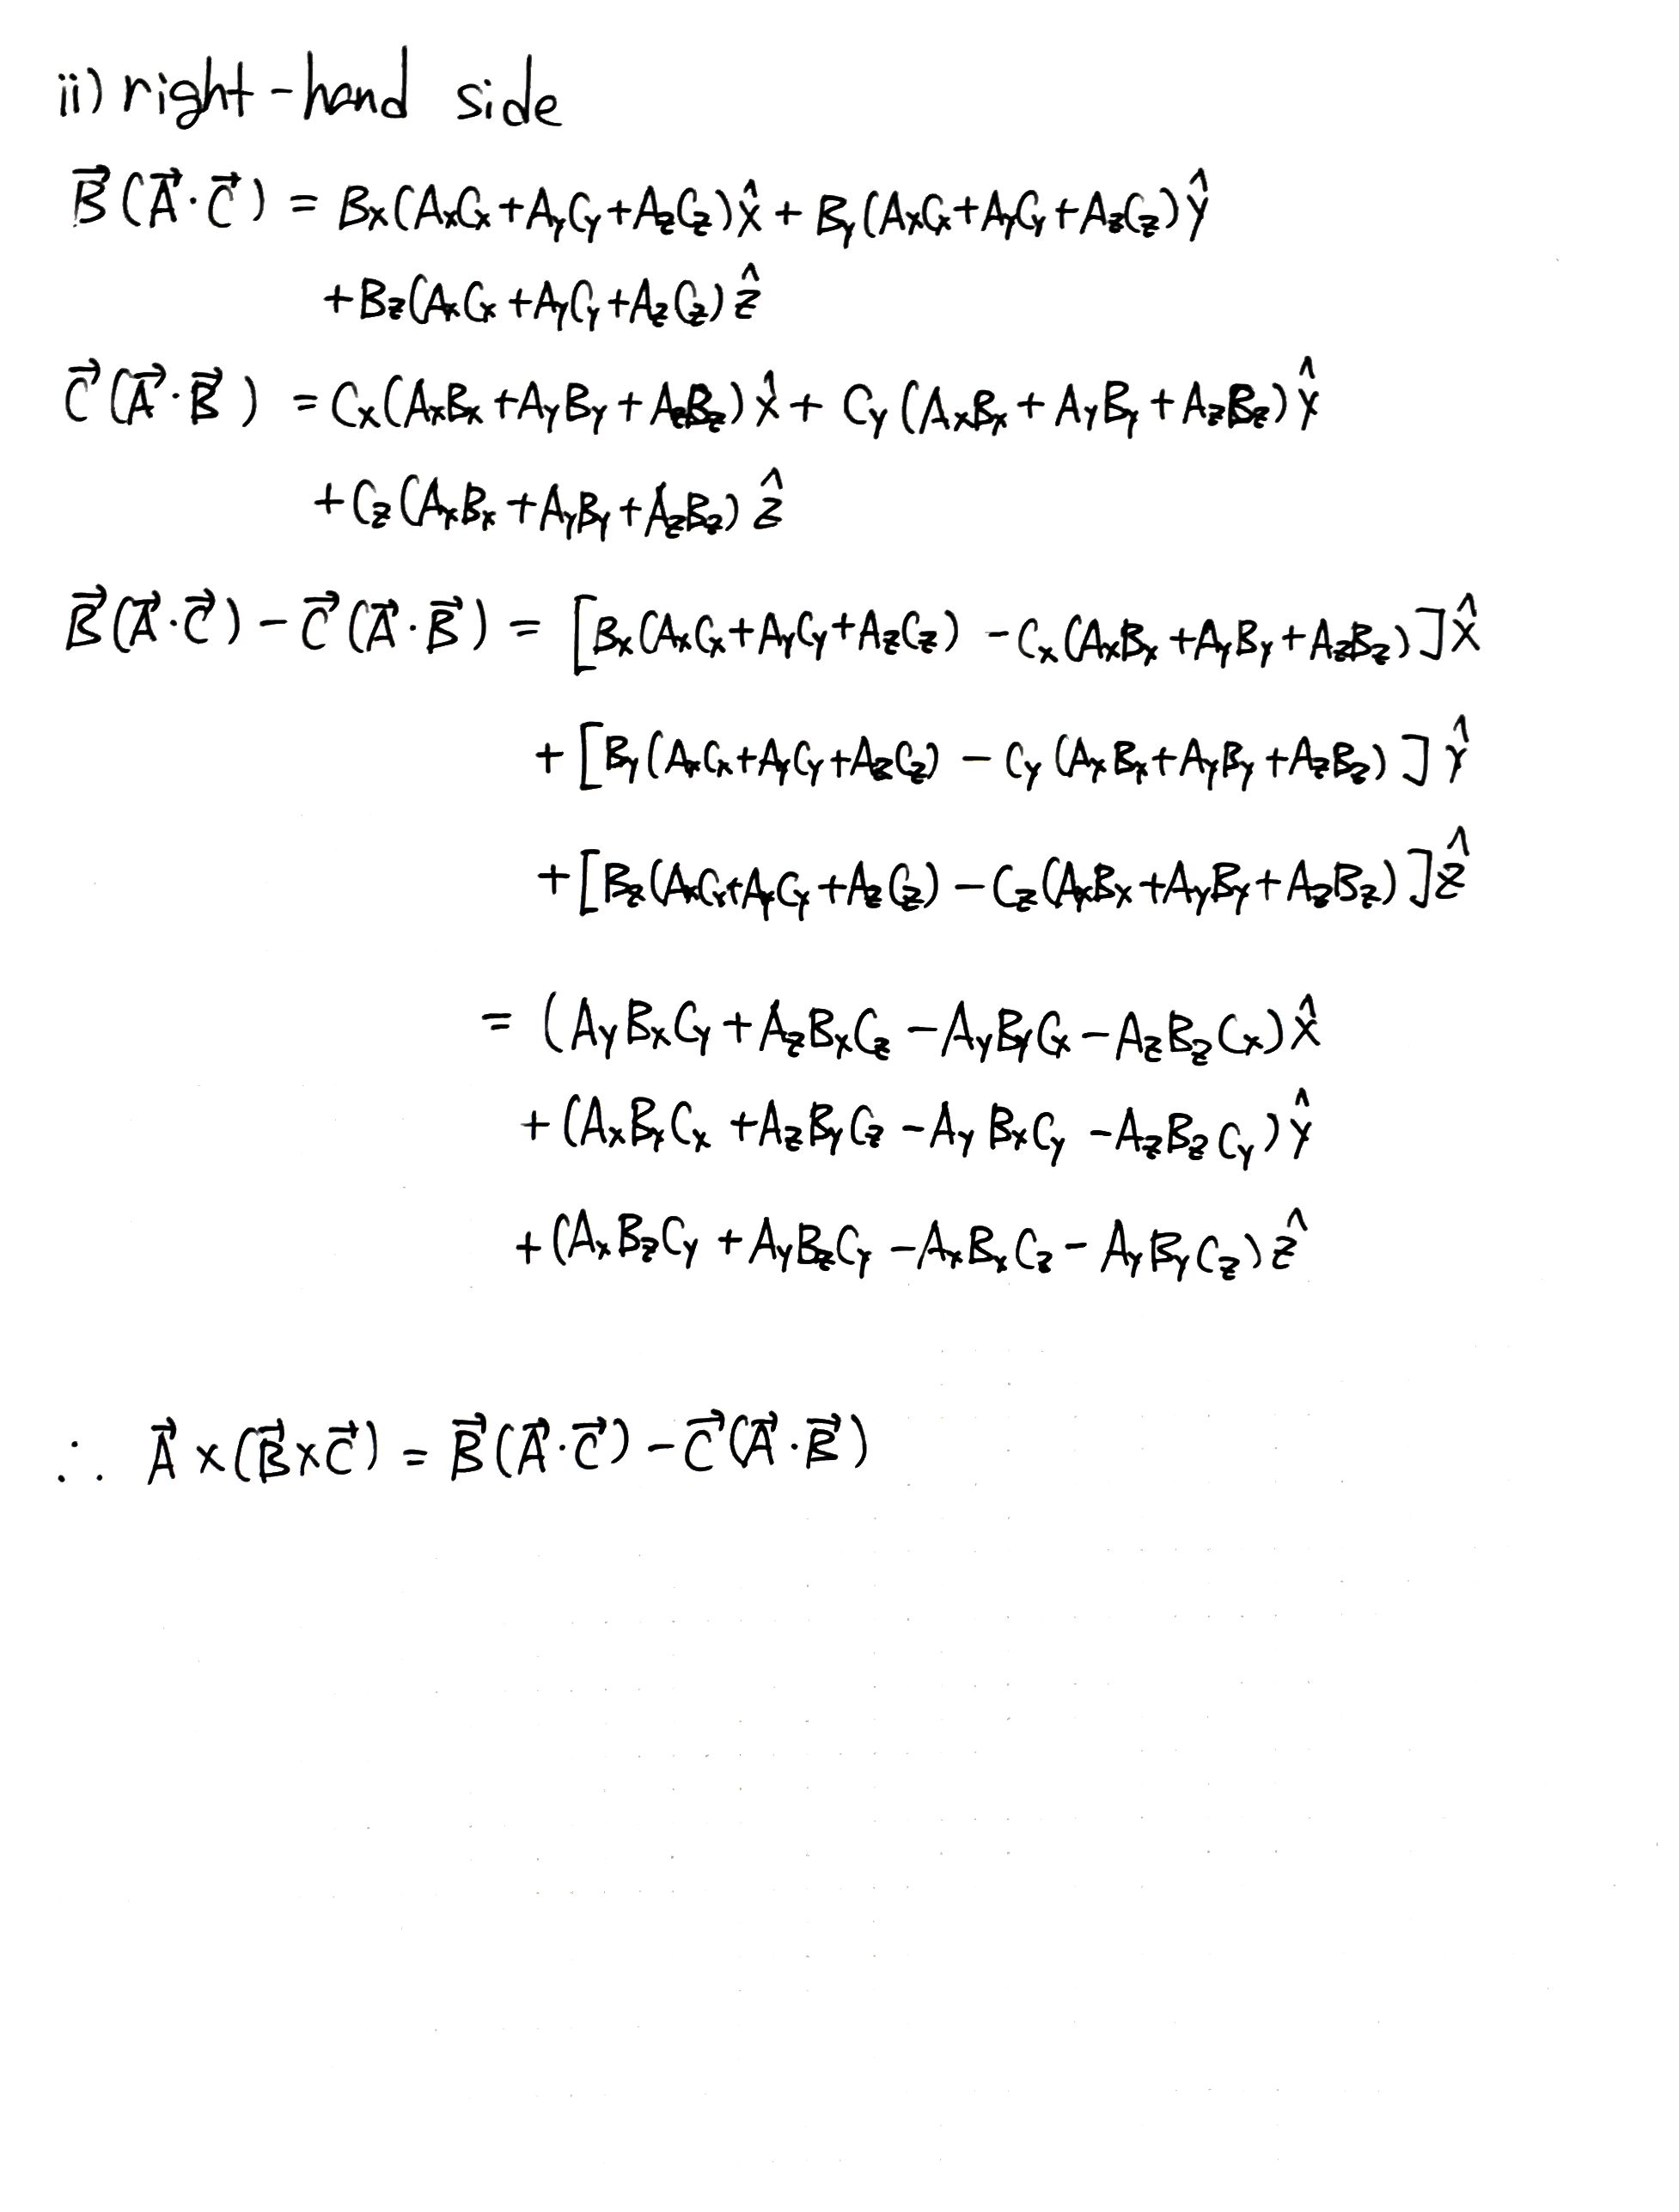 ii) right-hand side
B⃗(A⃗·C⃗) = Bx(AxCx+AyCy+AzCz)x̂ + By(AxCx+AyCy+AzCz)ŷ
+Bz(AxCx+AyCy+AzCz)ẑ
C⃗(A⃗·B⃗) = Cx(AxBx+AyBy+AzBz)x̂ + Cy(AxBx+AyBy+AzBz)ŷ
+Cz(AxBx+AyBy+AzBz)ẑ
B⃗(A⃗·C⃗)-C⃗(A⃗·B⃗) = [Bx(AxCx+AyCy+AzCz) -Cx(AxBx+AyBy+AzBz)]x̂
+[By(AxCx+AyCy+AzCz) - Cy(AxBx+AyBy+AzBz)]ŷ
+[Bz(AxCx+AyCy+AzCz)-Cz(AxBx+AyBy+AzBz)]ẑ
= (AyBxCy+AzBxCz-AyByCx-AzBzCx)x̂
+(AxByCx+AzByCz-AyBxCy-AzBzCy)ŷ
+(AxBzCy+AyBzCy-AxBxCz-AyByCz)ẑ
∴ A⃗×(B⃗×C⃗) = B⃗(A⃗·C⃗)-C⃗(A⃗·B⃗)